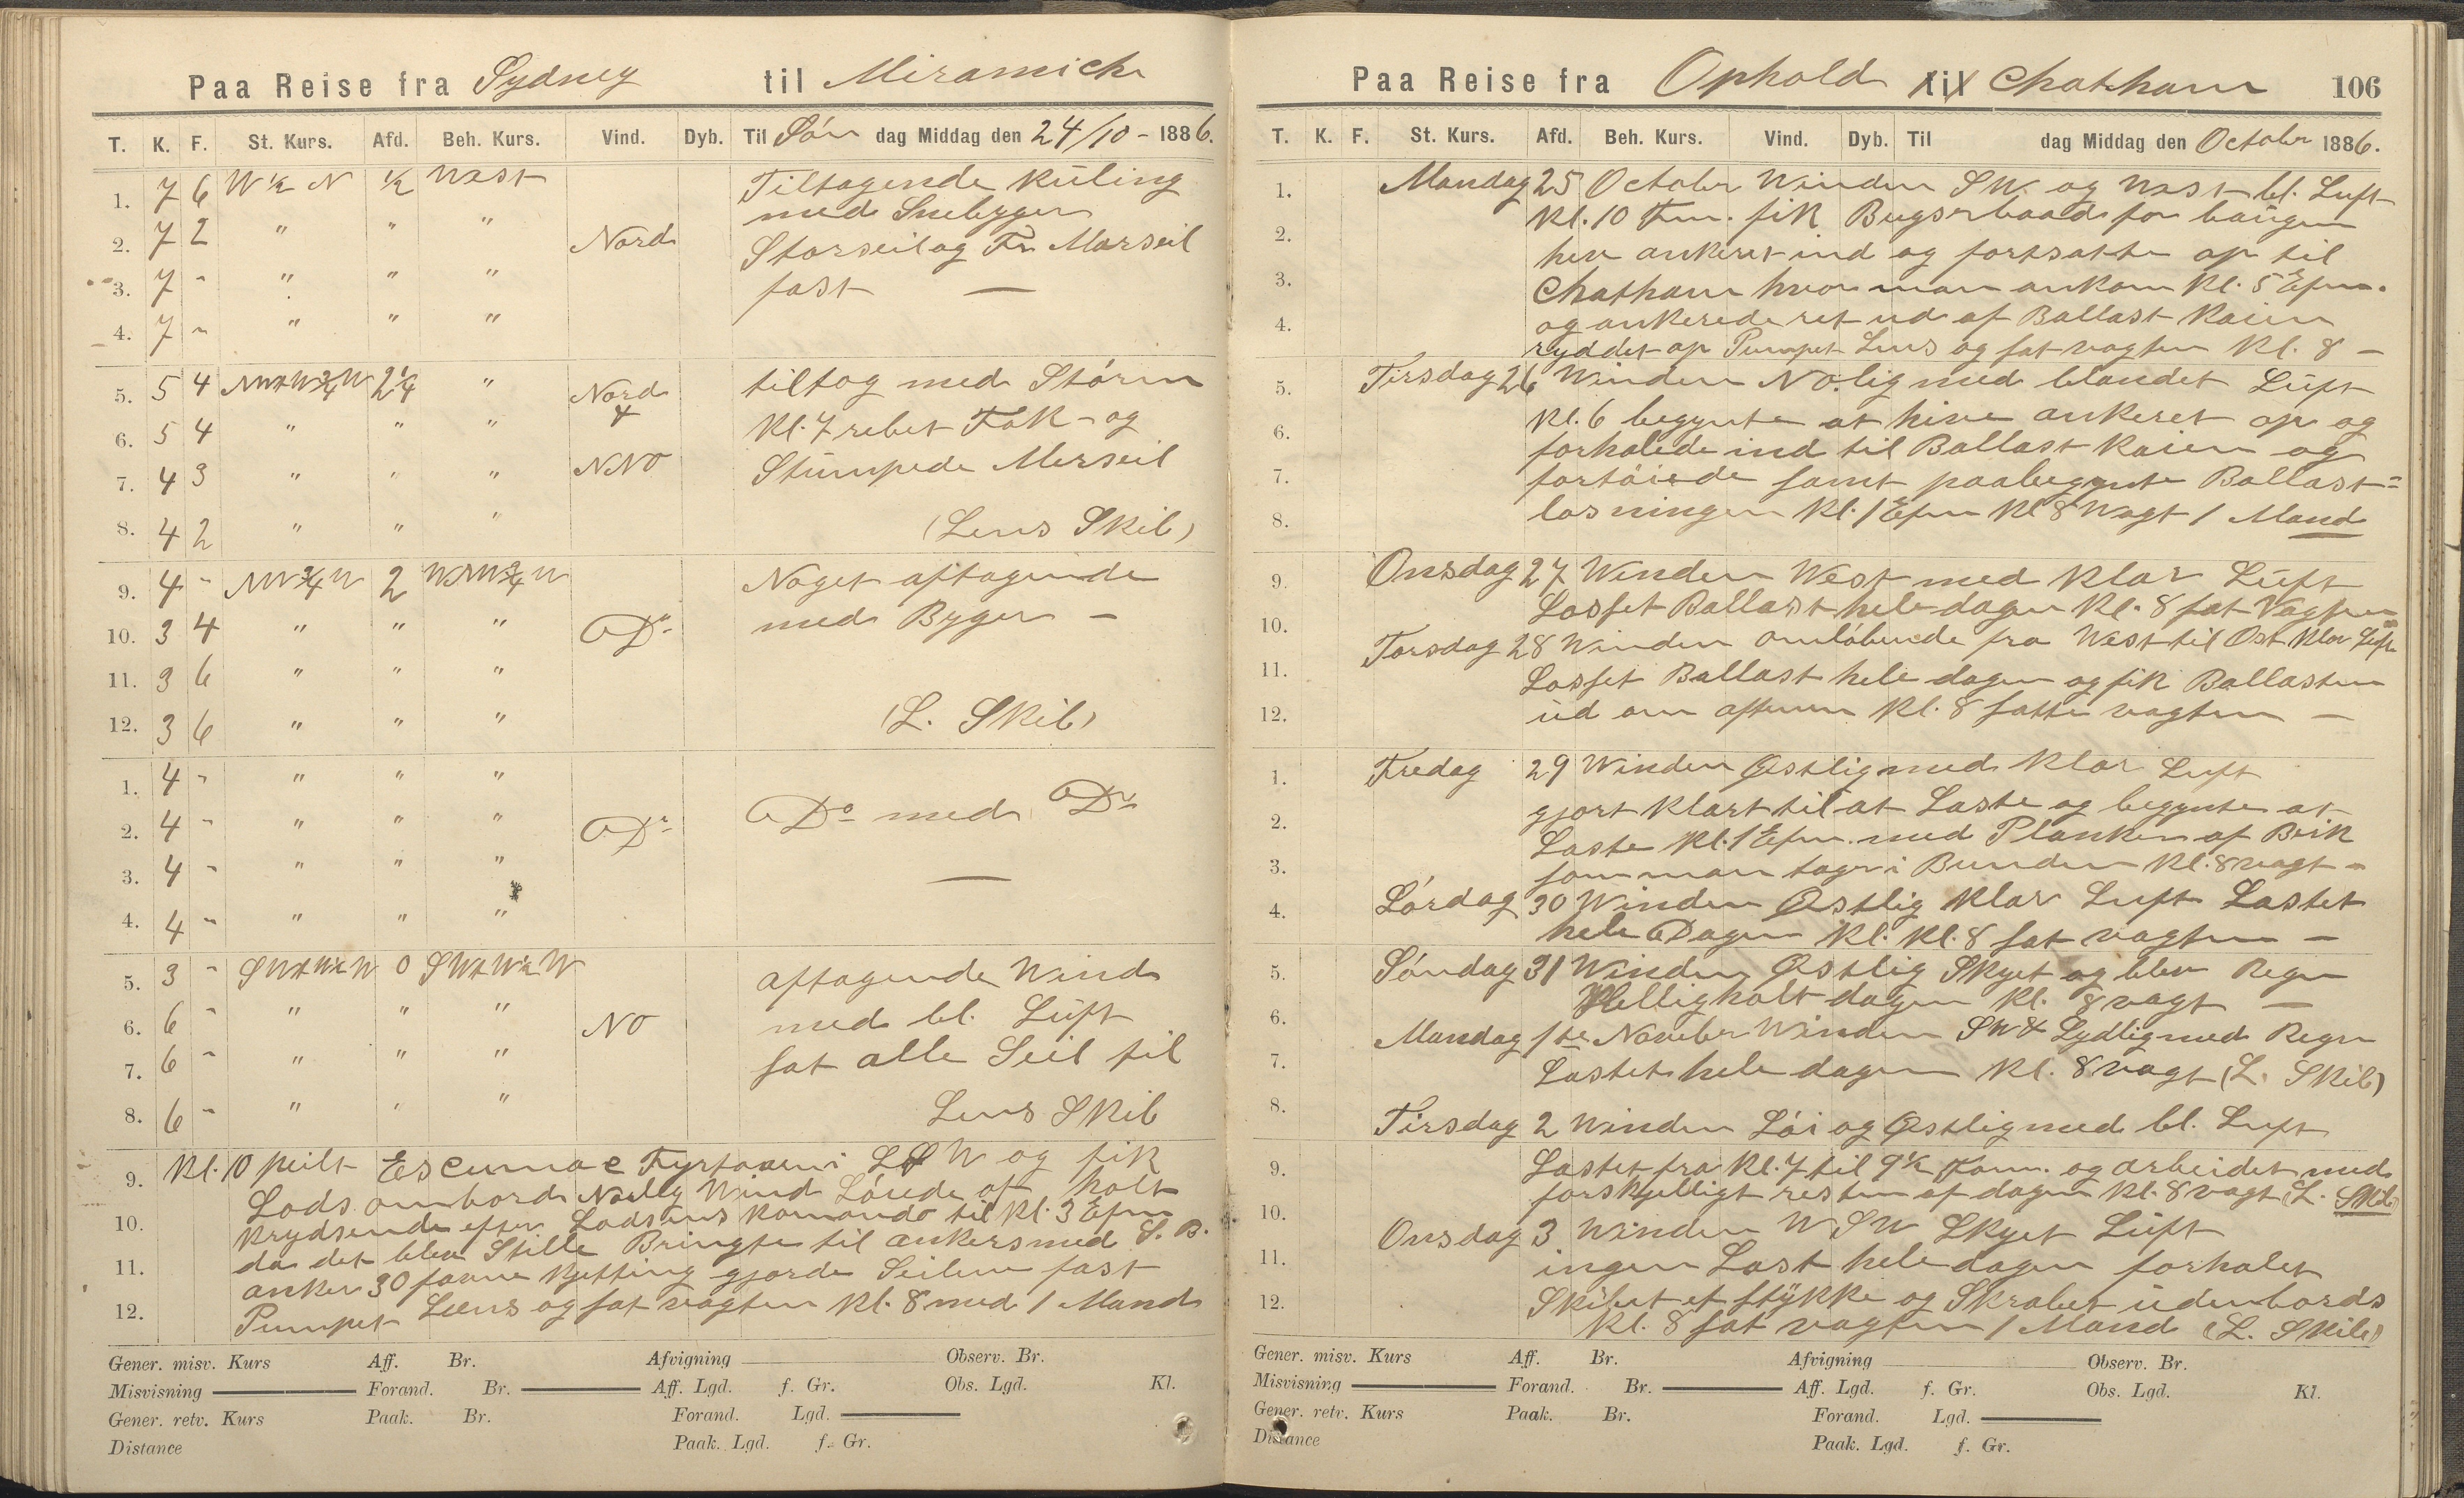 Paa Reise fra Sydney til Miramichi
T. K. F. St. Kurs. Afd. Beh. Kurs. Vind. Dyb. Til Søn dag Middag den 24/10 - 1886.
1. 7 6 W ½ N ½ West Tiltagende Kuling
med Snebyger
2. 7 2 " " " Nord Storseil og Fr. Marseil
3. 7 - " " " fast —
4. 7 - " " "
5. 5 4 2¼ " Nord tiltog med Storm
6. 5 4 " " " & Kl. 7 rebet Fok - og
7. 4 3 " " " NNO Stumpede Merseil
8. 4 2 " " " (Lens Skib)
9. 4 - NW¾W 2 WNW¾W Noget aftagende
10. 3 4 " " " Do med Byger -
11. 3 6 " " "
12. 3 6 " " " (L. Skib)
1. 4 - " " "
2. 4 - " " " Do Do med Do
3. 4 - " " " —
4. 4 - " " "
5. 3 - 0 aftagende Wind
6. 6 - " " " NO med bl. Luft
7. 6 - " " " sat alle Seil til
8. 6 - " " " Lens Skib
9. Kl. 10 peilt Escumac Fyrtaarn i og fik
Lods ombord Wind af holt
10. Krydsende efter Lodsens Komando til Kl. 3 Efm
11. da det blev Stille Bringte til ankers med S. B.
anker 30 favne Kjetting gjorde Seilene fast
12. Pumpet Læns og sat vagten Kl. 8 med 1 Mand
Gener. misv. Kurs Aff. Br. Afvigning Observ. Br.
Misvisning Forand. Br. Aff. Lgd. f. Gr. Obs. Lgd. Kl.
Gener. retv. Kurs Paak. Br. Forand. Lgd.
Distance Paak. Lgd. f. Gr.
Paa Reise fra Ophold til Chatham 106
T. K. F. St. Kurs. Afd. Beh. Kurs. Vind. Dyb. Til dag Middag den October 1886.
1. Mandag 25 October Winden SW. og West bl. Luft
Kl. 10 Fm. fik Bugserbaad for baugen
2. hev ankeret ind og fortsatte op til
3. Chatham hvor man ankom Kl. 5 Efm.
4. og ankerede ret ud af Ballast Kaien
ryddet op Pumpet Lens og sat vagten Kl. 8 -
5. Tirsdag 26 Winden NO.lig med blandet Luft
Kl. 6 begynte at hive ankeret op og
6. forhalede ind til Ballast Kaien og
7. fortøiede samt paabegynte Ballast=
8. losningen Kl. 1 Efm Kl 8 Wagt 1 Mand
9. Onsdag 27 Winden West med Klar Luft
Losset Ballast hele dagen Kl. 8 sat Vagten
10. Torsdag 28 Winden omløbende fra West til Ost Klar Luft
11. Losset Ballast hele dagen og fik Ballasten
12. ud om aftenen Kl. 8 satte vagten —
1. Fredag 29 Winden Østlig med Klar Luft
gjort Klart til at Laste og begynte at
2. Laste Kl. 1 Efm. med Planken af Birk
3. som man tager i Bunden Kl. 8 vagt -
4. Lørdag 30 Winden Østlig Klar Luft Lastet
hele Dagen Kl. Kl. 8 sat vagten —
5. Søndag 31 Winden Østlig Skyet og blev Regn
Helligholt dagen Kl. 8 vagt —
6. Mandag 1ste November Winden SW & Sydlig med Regn
7. Lastet hele dagen Kl. 8 vagt (L. Skib)
8. Tirsdag 2 Winden Løi og Østlig med bl. Luft
9. Lastet fra Kl. 7 til 9½ Form. og arbeidet med
forskjelligt resten af dagen Kl. 8 vagt (L. Skib)
10. Onsdag 3 Winden WSW Skyet Luft
11. ingen Last hele dagen forhalet
12. Skibet et stykke og Skrabet udenbords
Kl. 8 sat vagten 1 Mand (L. Skib)
Gener. misv. Kurs Aff. Br. Afvigning Observ. Br.
Misvisning Forand. Br. Aff. Lgd. f. Gr. Obs. Lgd. Kl.
Gener. retv. Kurs Paak. Br. Forand. Lgd.
Distance Paak. Lgd. f. Gr.